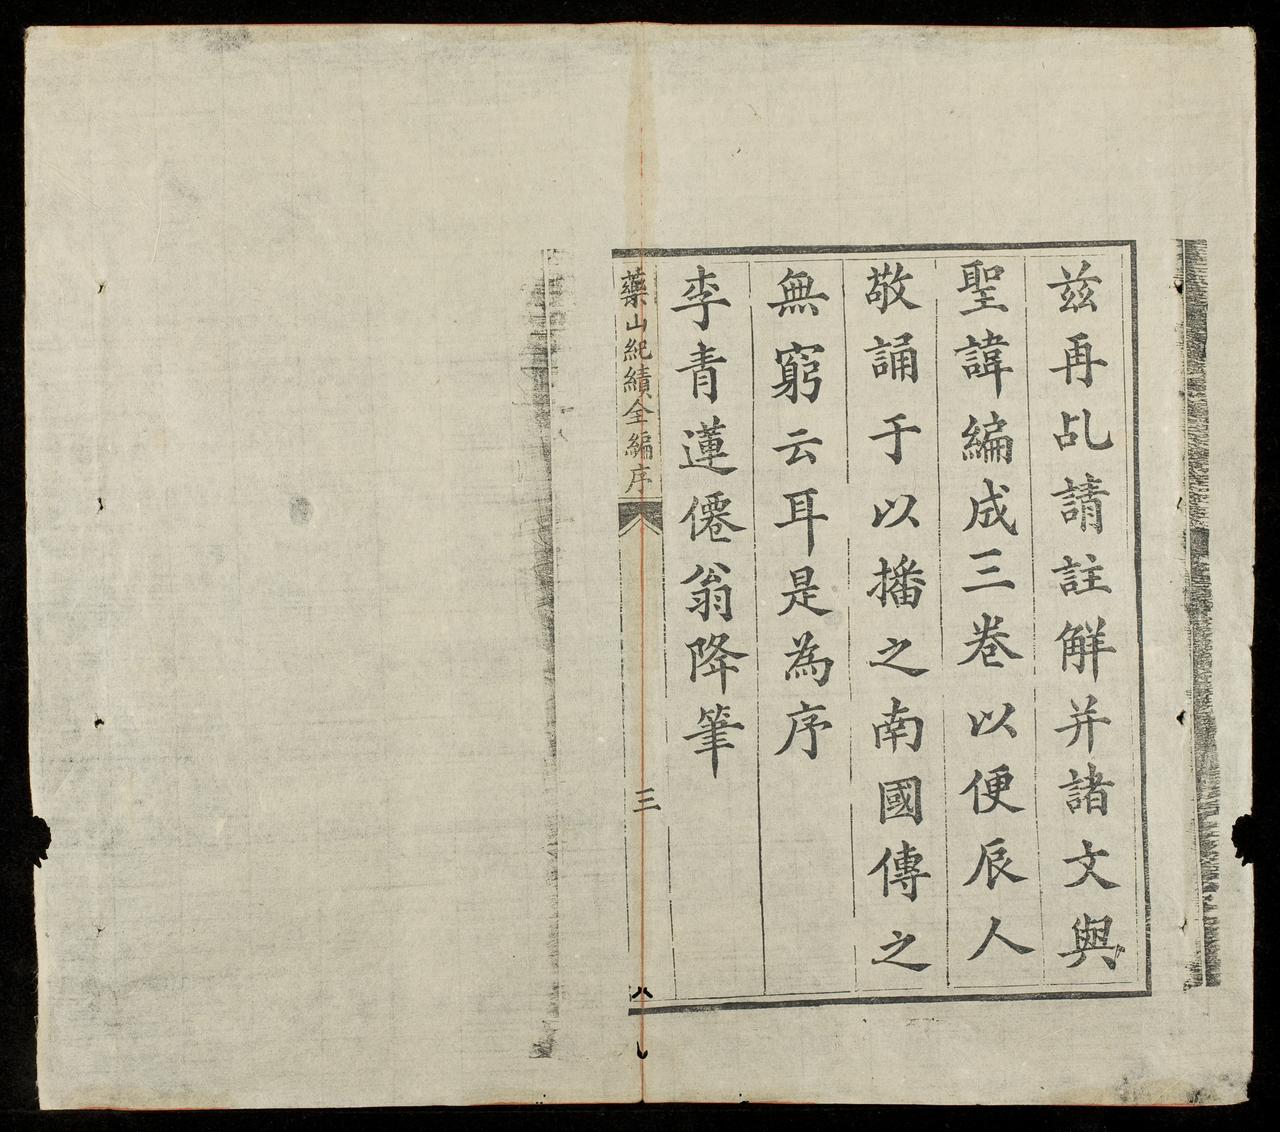 兹再乩請註解并諸文與
聖諱編成三卷以便辰人
敬誦于以播之南國傳之
無窮云耳是為序
李青蓮僊翁降筆
藥山紀績全編序
三